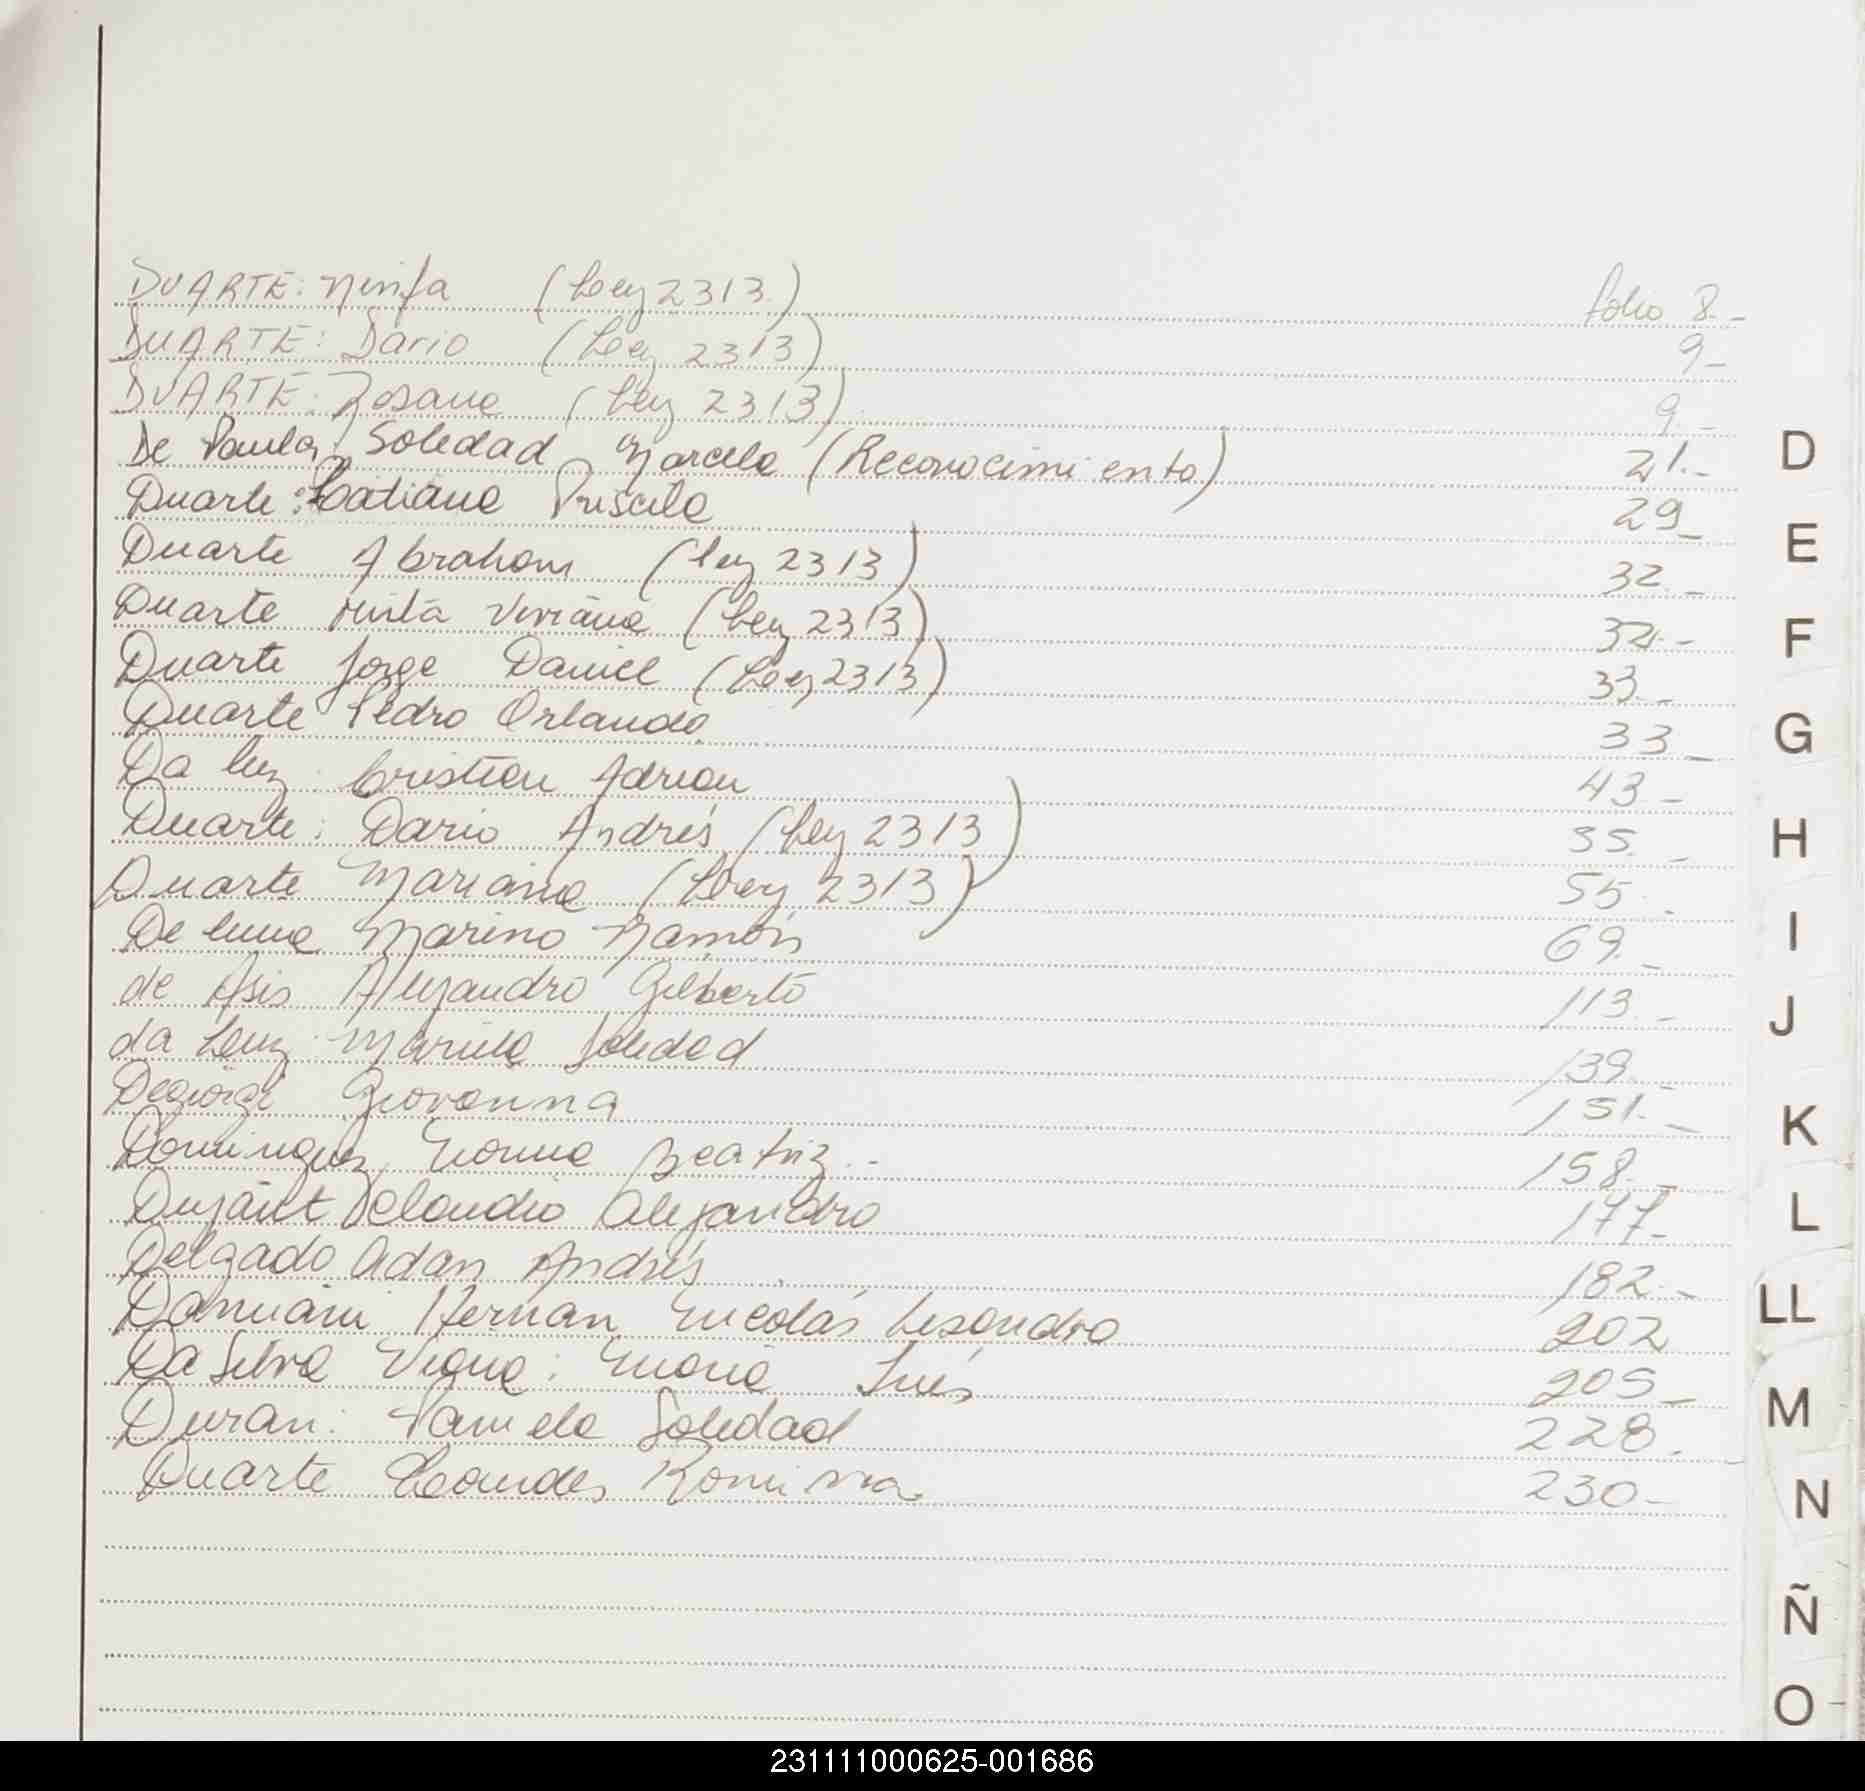 DUARTE: Ninfa (Ley 2313.) folio 8.-
DUARTE: Dario (Ley 2313) 9-
DUARTE: Rosana (Ley 2313) 9.-
De Paula: Soledad Marcela (Reconocimiento) 21.-
Duarte: Tatiana Priscila 29-
Duarte Abraham (Ley 2313) 32.-
Duarte Mirta Viviana (Ley 2313) 32.-
Duarte Jorge Daniel (Ley 2313) 33.-
Duarte Pedro Orlando 33-
Da Luz Cristian Adrian 43.-
Duarte: Dario Andrés (Ley 2313)
Duarte Mariana (Ley 2313) 55.-
De Luna Marino Ramón 69.-
de Asis Alejandro Gilberto 113.-
da Luz Mariela Soledad 139.-
Degiorgi Giovanna 151.-
Dominguez Norma Beatriz.- 158.-
Claudio Alejandro 177-
Delgado Adan Andrés 182.-
Damiani Hernan Nicolás Lisandro 202
Da Silva Viana: Maria Inés 205-
Duran: Pamela Soledad 228.-
Duarte Lourdes Romina. 230-
D
E
F
G
H
I
J
K
L
LL
M
N
Ñ
O
231111000625-001686